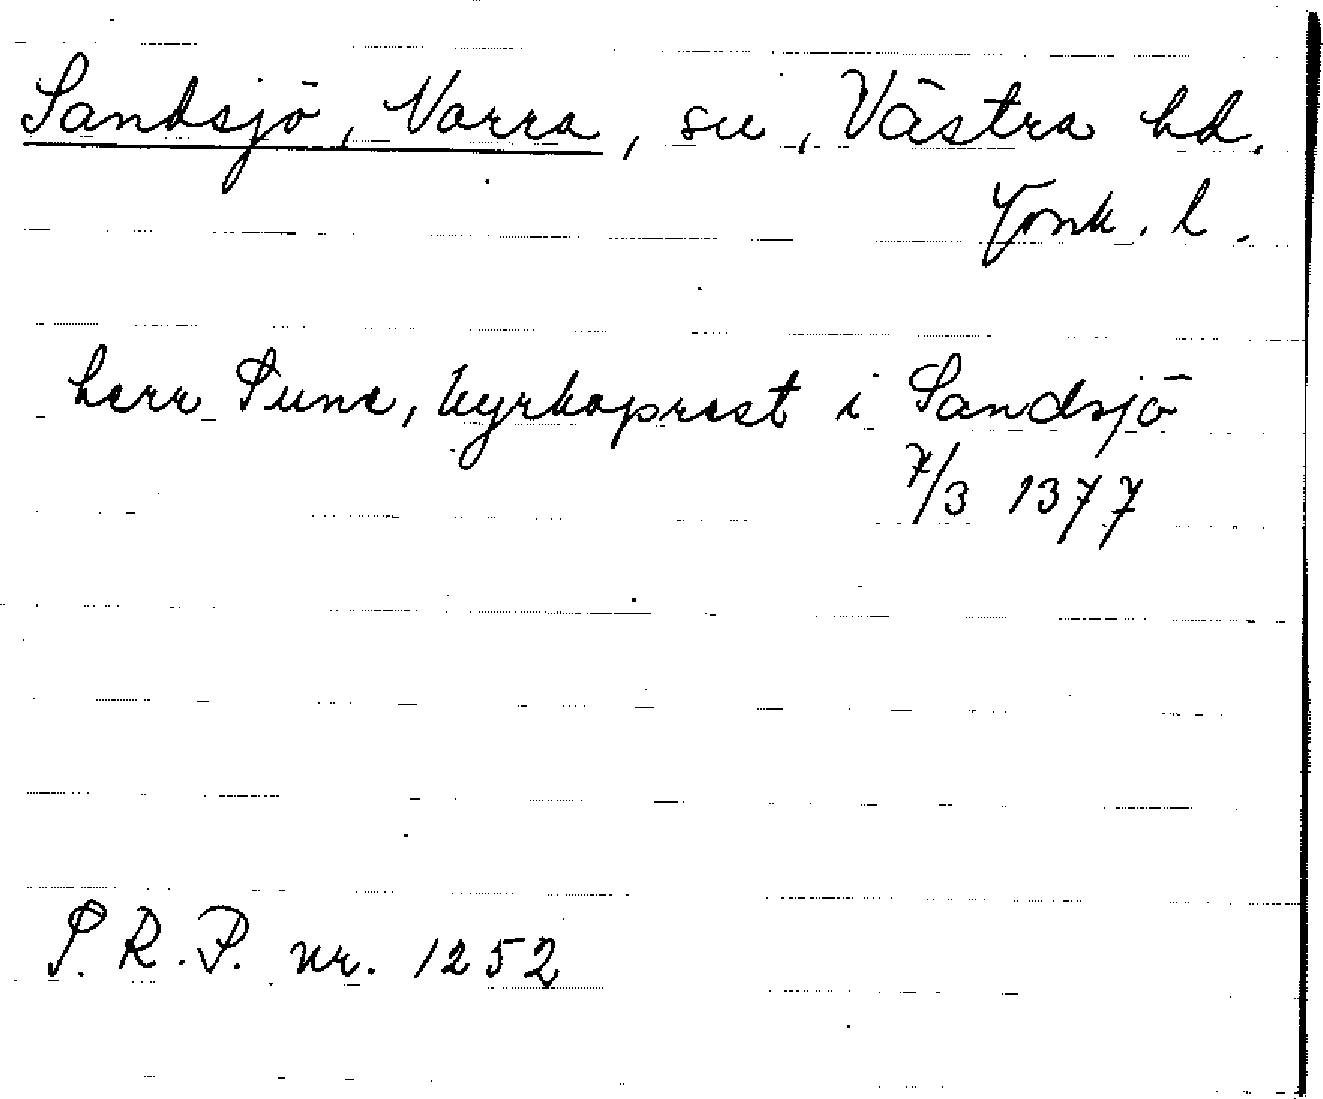 Sandsjö, Norra, sn, Västra hd.
Jönk. l.
herr Sune, kyrkoprest i Sandsjö
7/3 1377
S.R.P. nr. 1252